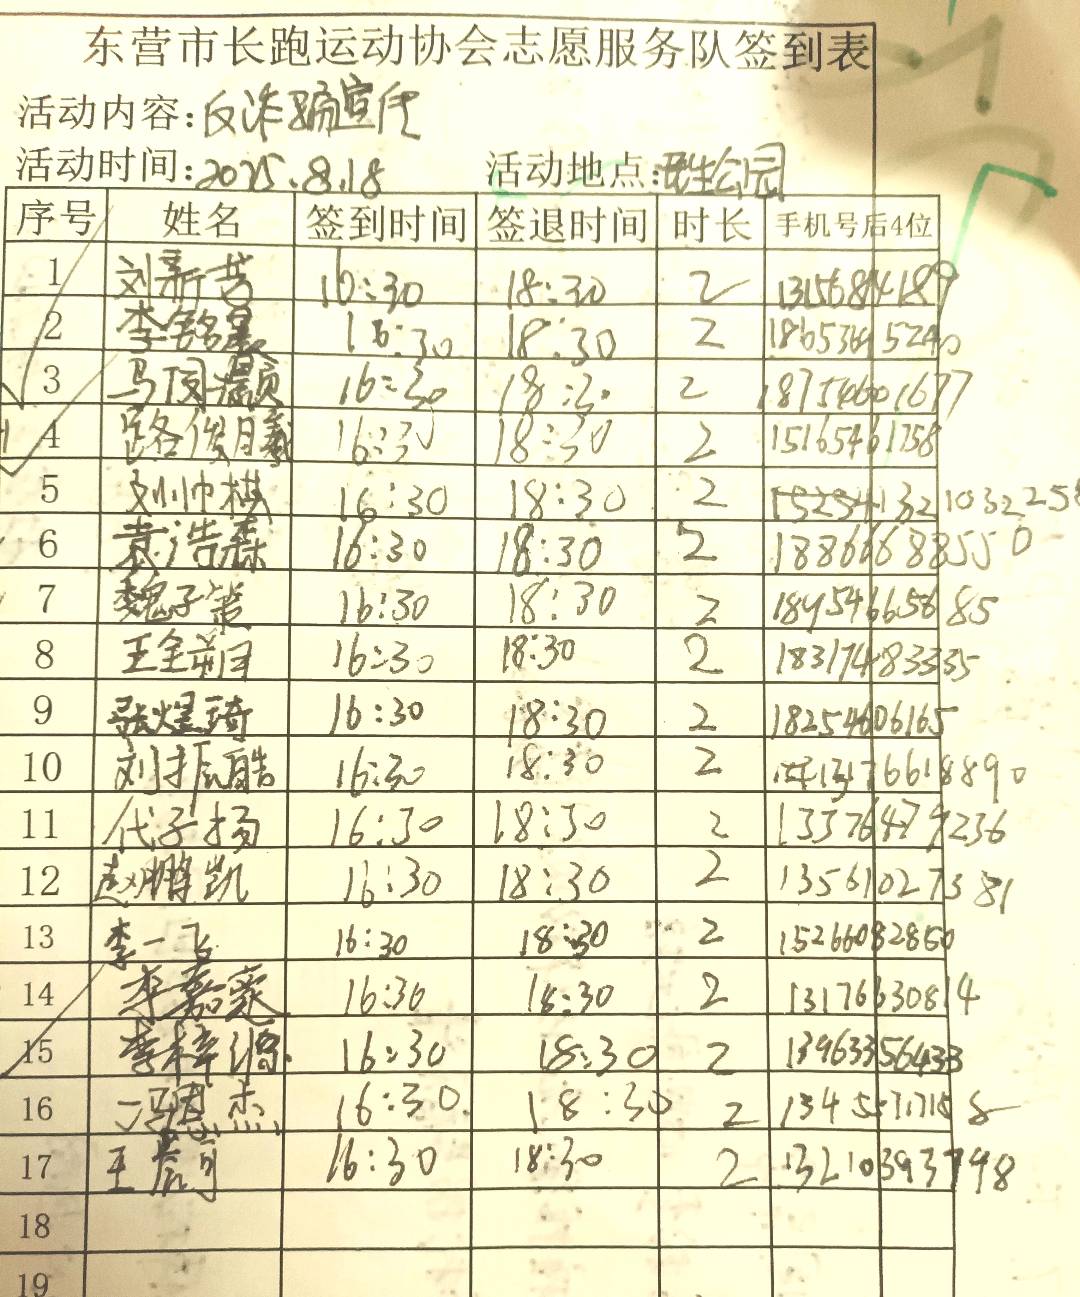 东营市长跑运动协会志愿服务队签到表
活动内容:反诈骗宣传
活动时间:2025.8.18 活动地点:民生公园
序号 姓名 签到时间 签退时间 时长 手机号后4位
1 刘新 16:30 18:30 2
2 李铭 16:30 18:30 2
3 马 16:30 18:30 2 18754601677
4 路俊 16:30 18:30 2 15165461758
5 刘帅棋 16:30 18:30 2
6 袁浩森 16:30 18:30 2 18866688550
7 魏子 16:30 18:30 2 18954665685
8 王 16:30 18:30 2 18317483335
9 张煜琦 16:30 18:30 2 18254606165
10 刘振皓 16:30 18:30 2 13176618890
11 代子扬 16:30 18:30 2 13376479236
12 赵鹏凯 16:30 18:30 2 13561027381
13 李一飞 16:30 18:30 2 15266082860
14 李嘉 16:30 18:30 2 13176630814
15 李梓源 16:30 18:30 2 13963356433
16 冯杰 16:30 18:30 2
17 王 16:30 18:30 2 13210393798
18
19